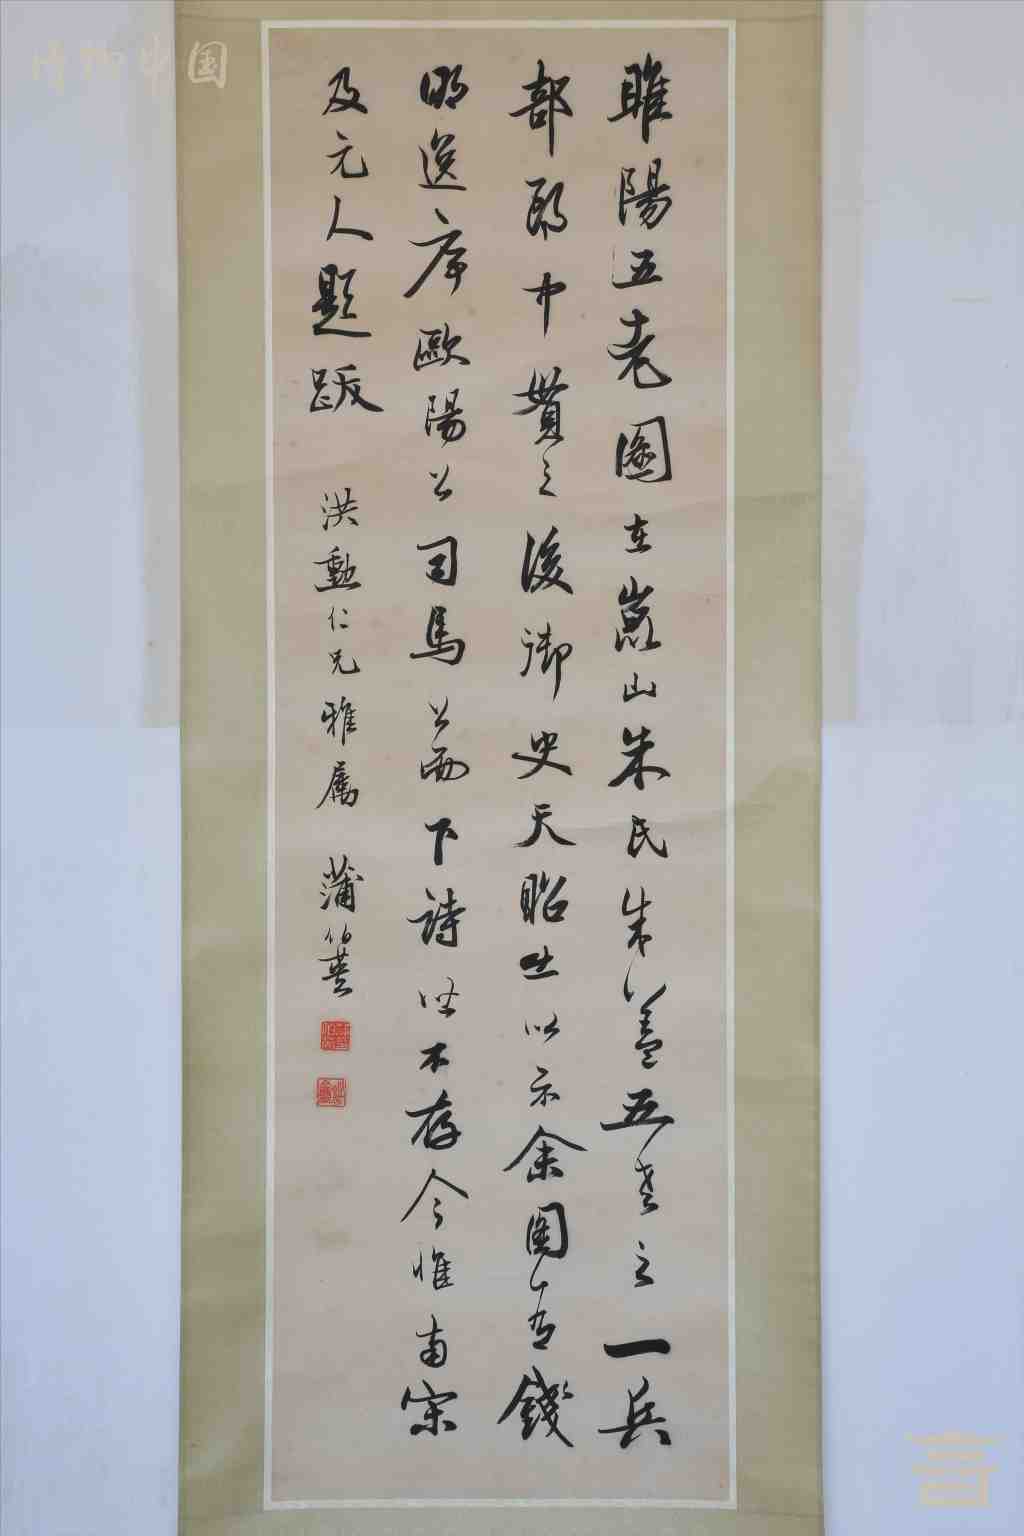 睢陽五老圖在崑山朱氏朱蓋五老之一兵
部郎中貫之後御史天昭出以示余圖有錢
明逸序歐陽公司馬公而下詩俱不存今惟南宋
及元人題跋
洪勳仁兄雅屬
蒲伯英